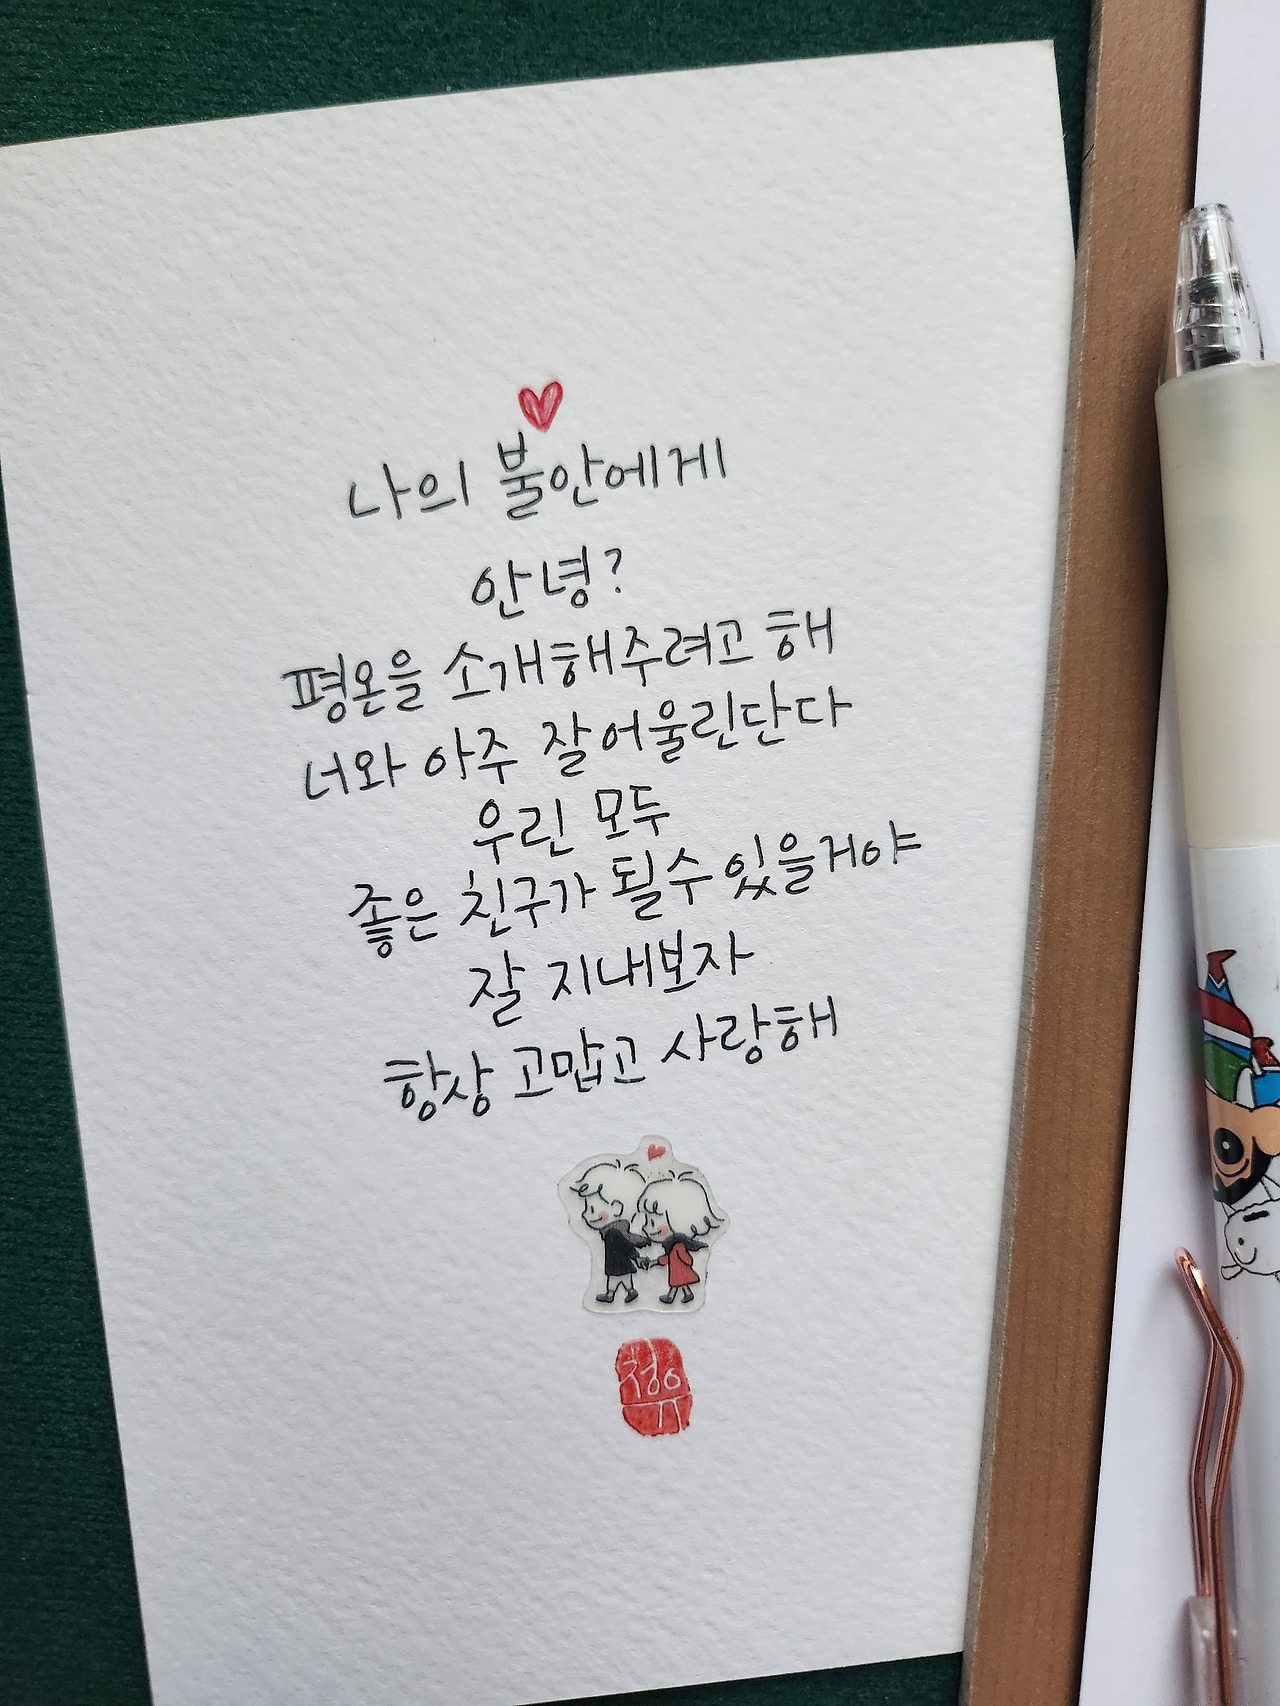 나의 불안에게
안녕?
평온을 소개해주려고 해
너와 아주 잘어울린단다
우린 모두
좋은 친구가 될수있을거야
잘 지내보자
항상 고맙고 사랑해